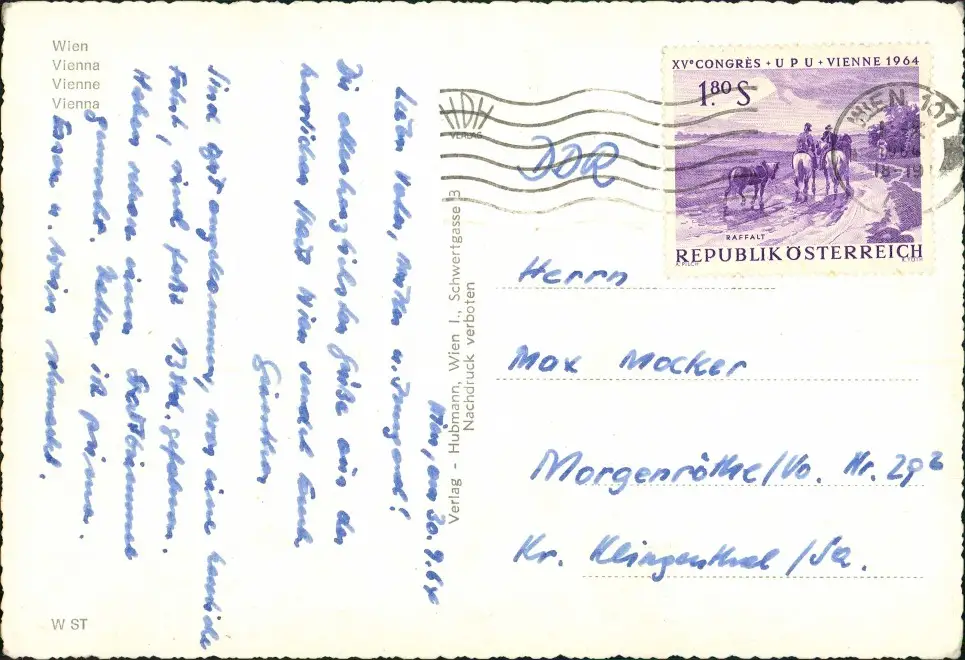 Wien
Vienna
Vienne
Vienna
Wien, am 30.9.64
Lieber Vater, Mutter u. Irmgard!
Die allerherzlichsten Grüße aus der
herrlichen Stadt Wien sendet Euch
Günther
Sind gut angekommen, war eine herrliche
Fahrt, sind fast 13 Std. gefahren.
Haben schon einen Stadtbummel
gemacht. Wetter ist prima.
Essen u. Wein schmeckt.
W ST
Verlag - Hubmann, Wien I., Schwertgasse 3
Nachdruck verboten
HDH
VERLAG
DDR
XVᵉ CONGRÈS + UPU + VIENNE 1964
1.80 S
RAFFALT
REPUBLIK ÖSTERREICH
WIEN 101
Herrn
Max Mocker
Morgenröthe/Vo. Nr. 29²
Kr. Klingenthal/Sa.